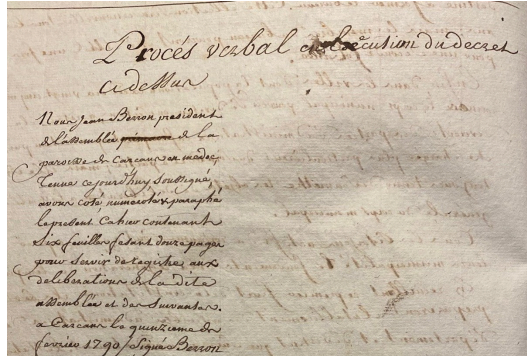 Procés verbal en execution du decret
cidessus
Nous Jean Berron president
de l'assemblée primaire de la
paroisse de Carcans en medoc
Tenue cejourd'huy soussigné,
avons coté numeroté & paraphé
lepresent Cahier contenant
six feuilles fesant douze pages
pour servir de registre aux
deliberations de la dite
assemblée et des suivantes.
a Carcans le quinzieme de
fevrier 1790 / Signé Berron